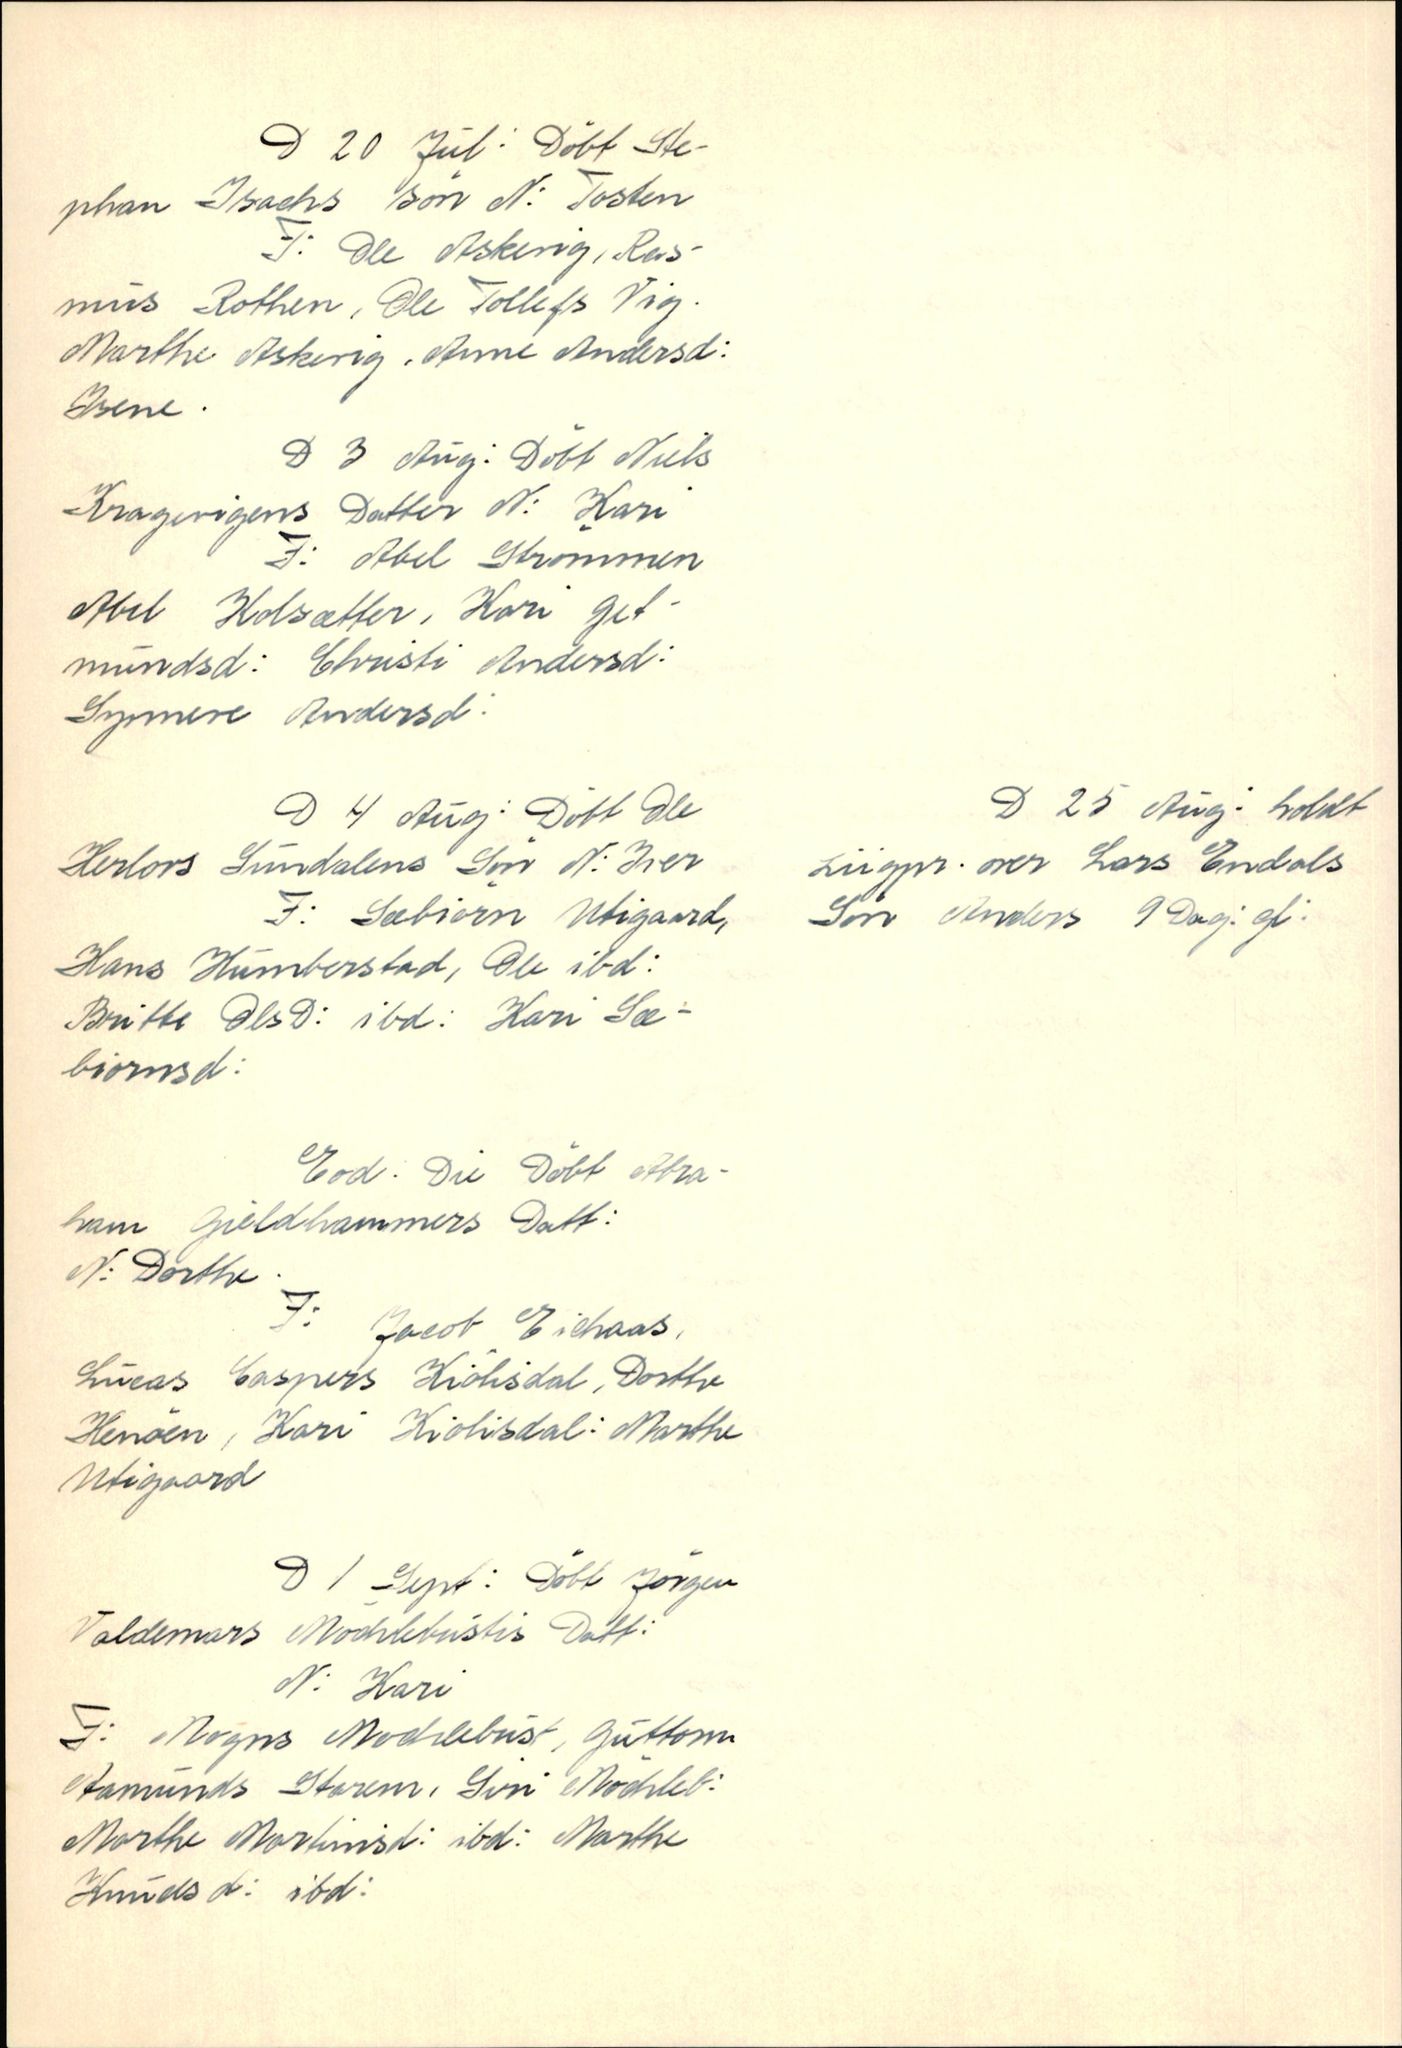 D 20 Jul: Döbt Ste-
phan Isachs sön N: Tosten
F: Ole Askevig, Ras-
mus Rothen, Ole Tollefs Vig.
Marthe Askevig. Anne Andersd:
Isene.
D 3 Aug: Döbt Niels
Kragevigens Datter N: Kari
F: Abel Strömmen
Abel Kolsætter, Kari Get-
mundsd: Christi Andersd:
Synneve Andersd:
D 4 Aug: Döbt Ole
Herlovs Sundalens Sön N: Iver
F: Sæbiörn Utigaard,
Hans Humberstad, Ole ibd:
Britte OlsD: ibd: Kari Sæ-
biornsd:
Eod: Die Döbt Abra-
ham Gieldhammers Datt:
N: Dorthe.
F: Jacob Eichaas,
Lucas Caspers Kiölisdal, Dorthe
Henöen, Kari Kiolisdal: Marthe
Utigaard
D 1 Sept: Döbt Jörgen
Valdemars Möchlebustis Datt:
N: Kari
F: Mogns Mochlebust, Guttorm
Aamunds Starem, Siri Möchleb:
Marthe Martinisd: ibd: Marthe
Knudsd: ibd:
D 25 Aug: holdt
Liigpr. over Lars Endals
Sön Anders 9 Dag: gl: